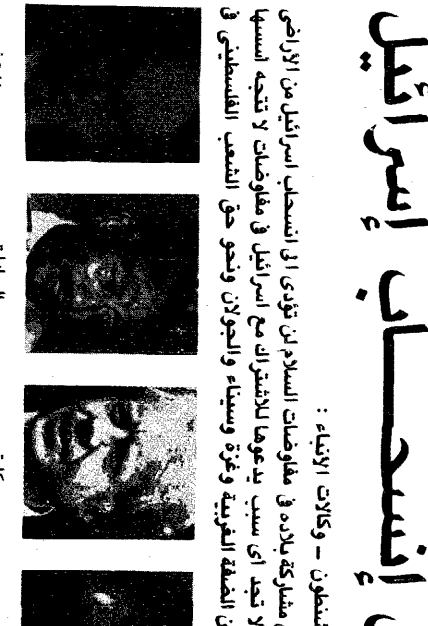 إنسحاب إسرائيل
وكالات الانباء :
مشاركة بلاده في مفاوضات السلام لن تؤدى الى انسحاب اسرائيل من الأراضى
لا تجد اى سبب يدعوها للاشتراك مع اسرائيل في مفاوضات لا تتجه أسسها
الضفة الغربية وغزة وسيناء والجولان ونحو حق الشعب الفلسطينى في